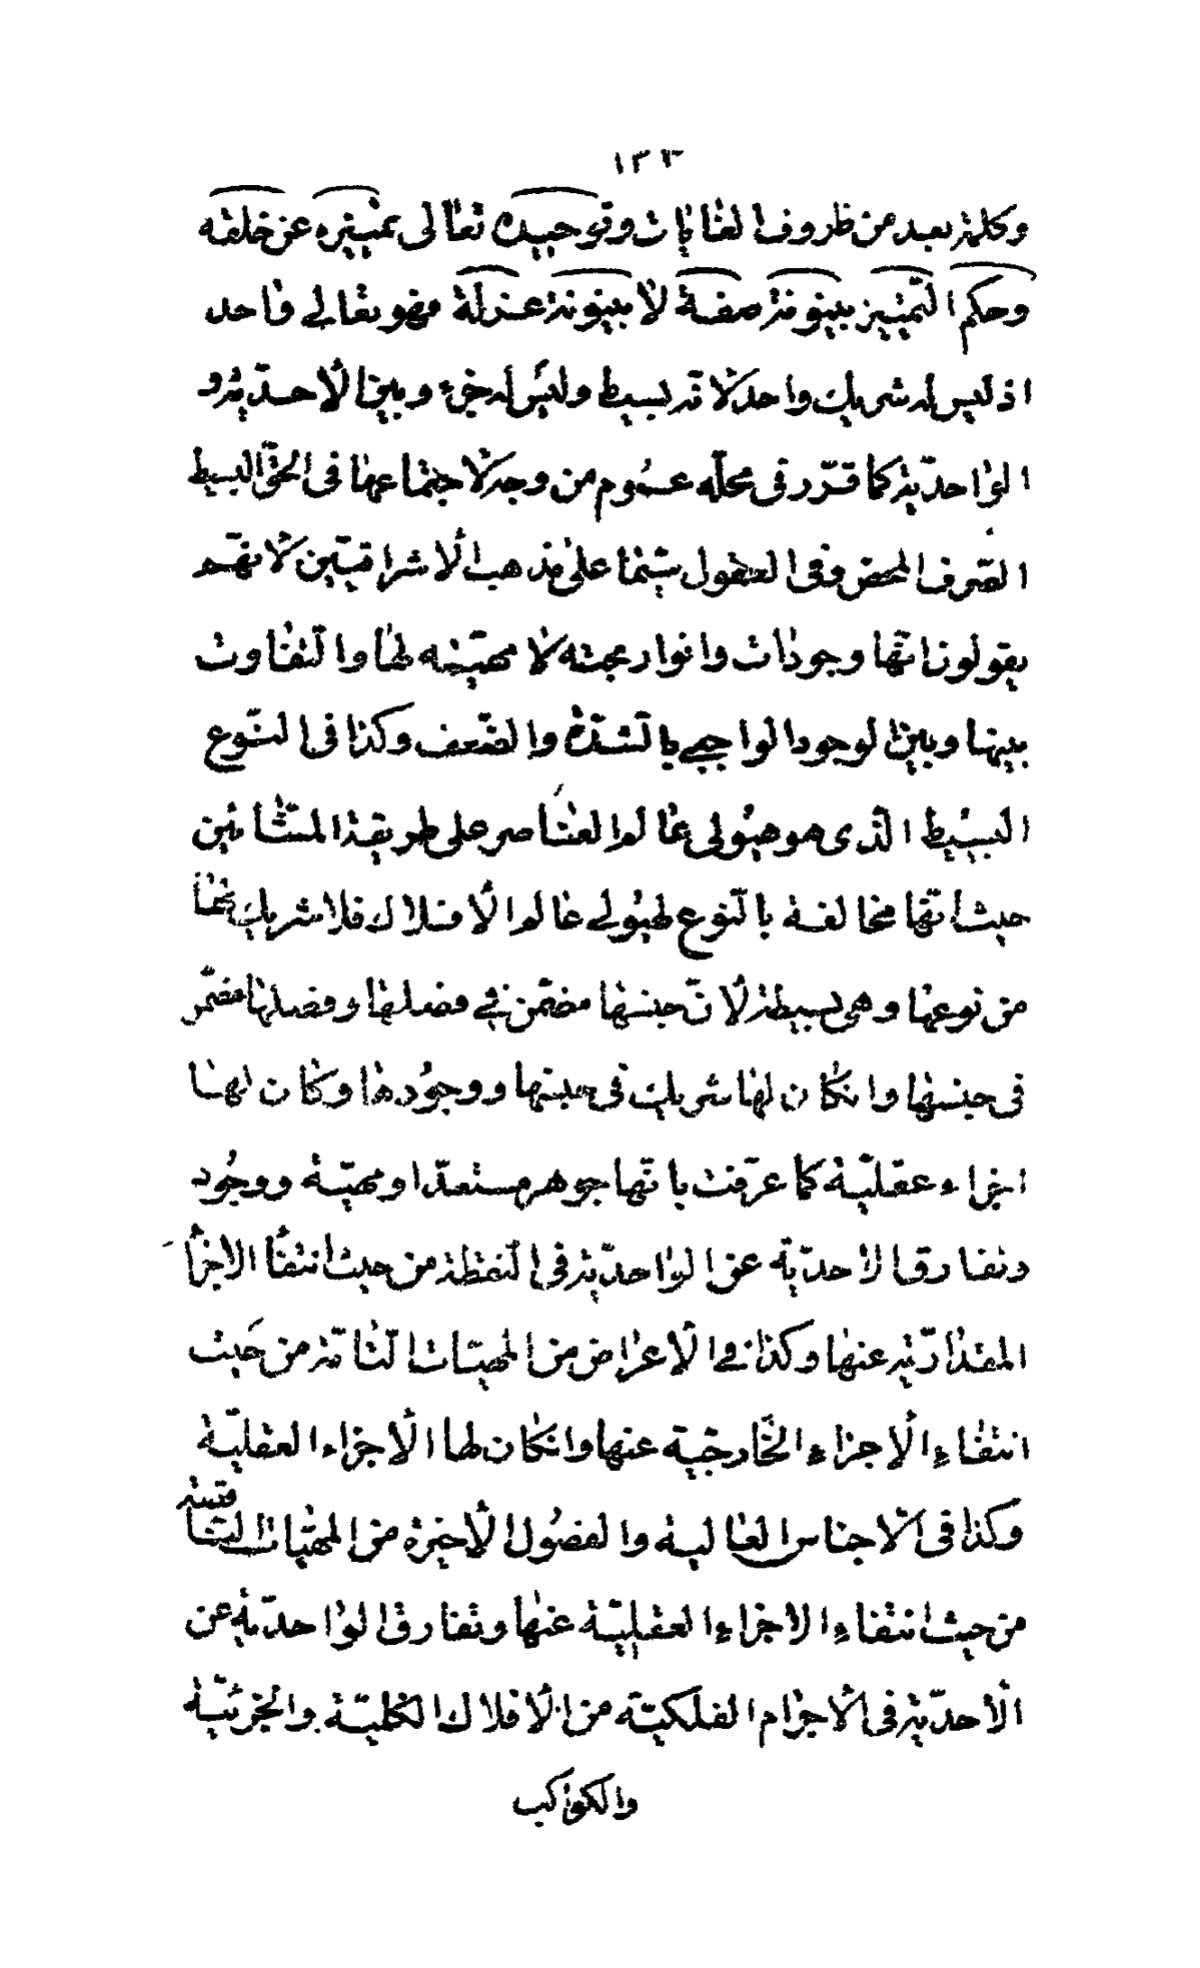 ١٣٣
وكلمة بعيد من ظروف الغايات وتوحيده تعالى تمييزه عن خلقه
وحكم التمييز بينونة صفة لا بينونة عزلة فهو تعالى واحد
اذ ليس له شريك واحد لانه بسيط وليس له جزء وبين الأحدية و
الواحدية كما قرر فى محله عموم من وجه لاجتماعهما فى الحق البسيط
الصرف المحض وفى العقول سيما على مذهب الاشراقيين لانهم
يقولون انها وجودات وانوار بحته لا مهية لها والتفاوت
بينها وبين الوجود الواجبي بالشدة والضعف وكذا فى النوع
البسيط الذى هو هيولى عالم العناصر على طريقة المشائين
حيث انها مخالفة بالنوع لهيولى عالم الأفلاك فلا شريك لها
من نوعها وهى بسيطة لأن جنسها مضمن في فصلها وفصلها مضمر
فى جنسها وان كان لها شريك فى ووجودها وكان لها
اجزاء عقلية كما عرفت بانها جوهر مستعد او مهية ووجود
وتفارق الأحدية عن الواحدية فى النقطة من حيث انتفاء الاجزاء
المقدارية عنها وكذا في الأعراض من المهيات التامة من حيث
انتفاء الأجزاء الخارجية عنها وان كان لها الأجزاء العقلية
وكذا فى الأجناس العالية والفصول الأخيرة من المهيات الناقصة
من حيث انتفاء الاجزاء العقلية عنها وتفارق الواحدية عن
الأحدية فى الأجرام الفلكية من الأفلاك الكلية والجزئية
والكواكب